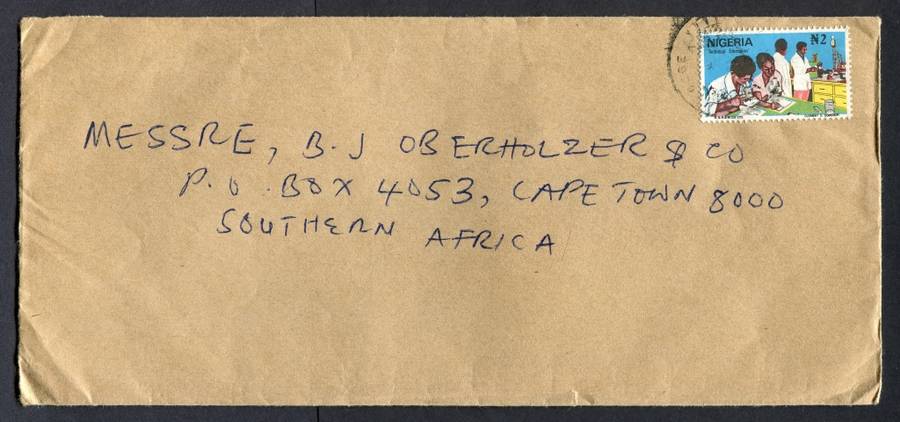 NIGERIA N2
Technical Education
MESSRE, B.J OBERHOLZER $ CO
P.O.BOX 4053, CAPE TOWN 8000
SOUTHERN AFRICA